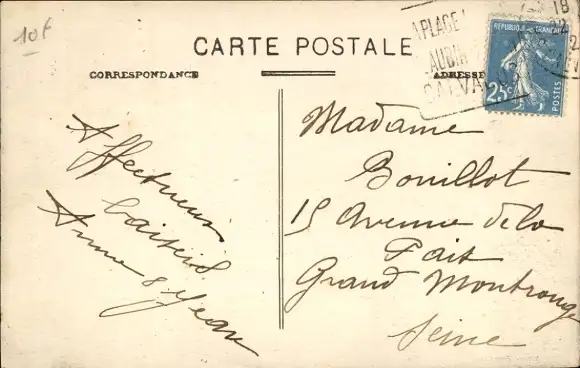 10f
CARTE POSTALE
CORRESPONDANCE
ADRESSE
A PLAGE
AUBIN
CALVADOS
18
22
REPUBLIQUE FRANÇAISE
25c
POSTES
Affectueux
baisers
Anne & Jean
Madame
Bouillot
15 Avenue de la
Paix
Grand Montrouge
Seine